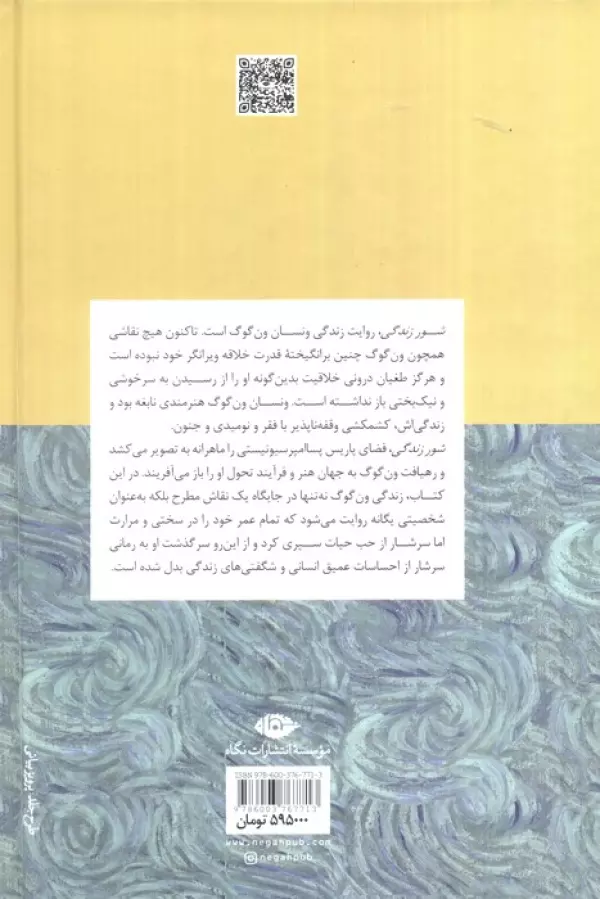 شور زندگی، روایت زندگی ونسان ون‌گوگ است. تاکنون هیچ نقاشی
همچون ون‌گوگ چنین برانگیختهٔ قدرت خلاقه ویرانگر خود نبوده است
و هرگز طغیان درونی خلاقیت بدین‌گونه او را از رسیدن به سرخوشی
و نیک‌بختی باز نداشته است. ونسان ون‌گوگ هنرمندی نابغه بود و
زندگی‌اش، کشمکشی وقفه‌ناپذیر با فقر و نومیدی و جنون.
شور زندگی، فضای پاریس پساامپرسیونیستی را ماهرانه به تصویر می‌کشد
و رهیافت ون‌گوگ به جهان هنر و فرآیند تحول او را باز می‌آفریند. در این
کتاب، زندگی ون‌گوگ نه‌تنها در جایگاه یک نقاش مطرح بلکه به‌عنوان
شخصیتی یگانه روایت می‌شود که تمام عمر خود را در سختی و مرارت
اما سرشار از حب حیات سپری کرد و از این‌رو سرگذشت او به رمانی
سرشار از احساسات عمیق انسانی و شگفتی‌های زندگی بدل شده است.
مؤسسهٔ انتشارات نگاه
ISBN 978-600-376-771-3
9786003767713
۵۹۵۰۰۰ تومان
www.negahpub.com
negahpub
طرح جلد: پرویز بیانی